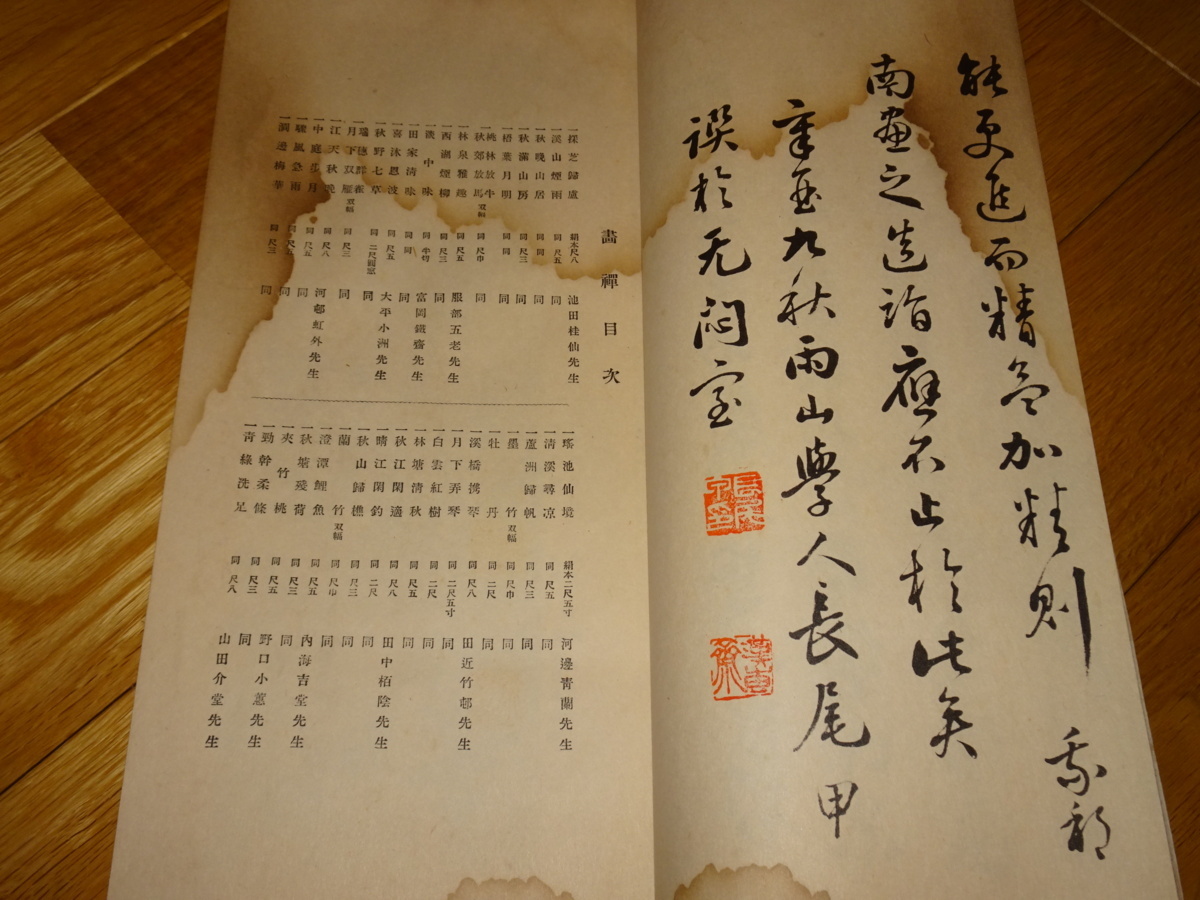 能更進而精益加精則 我邦
南畫之造詣應不止於此矣
辛亥九秋雨山學人長尾甲
譔於无悶室
畫禪目次
一採芝歸盧 絹本尺八 池田桂仙先生
一溪山煙雨 同尺五 同
一秋晚山居 同同 同
一秋滿山房 同尺三 同
一梧葉月明 同同 同
一桃林放牛
秋郊放馬 双幅 同尺巾 同
一林泉雅趣 同尺五 服部五老先生
一西湖煙柳 同尺三 同
一機中味 同半切 富岡鐵齋先生
一田家清味 同同 同
一喜沐恩波 同尺五 大平小洲先生
一秋野七草 同二尺 同
一月下双雁 双幅 同尺三 同
一江天秋晚 同尺八 河邨虹外先生
一中庭步月 同尺五 同
一驟風急雨 同尺五 同
一澗邊梅華 同尺三 同
一瑤池仙境 絹本二尺五寸 河邊青蘭先生
一清溪尋凉 同尺五 同
一蘆洲歸帆 同尺三 同
一墨竹 双幅 同尺巾 同
一牡丹 同二尺 同
一溪橋携琴 同尺八 田近竹邨先生
一月下弄琴 同二尺五寸 同
一白雲紅樹 同二尺 同
一林塘清秋 同尺八 同
一秋江閑適 同尺八 同
一晴江閑釣 同二尺 田中栢陰先生
一秋山歸樵 同尺三 同
一蘭竹 双幅 同尺巾 同
一澄潭鯉魚 同尺五 同
一秋塘殘荷 同尺三 內海吉堂先生
一夾竹桃 同尺五 同
一勁幹柔條 同尺三 野口小蕙先生
一青綠洗足 同尺八 同
山田介堂先生